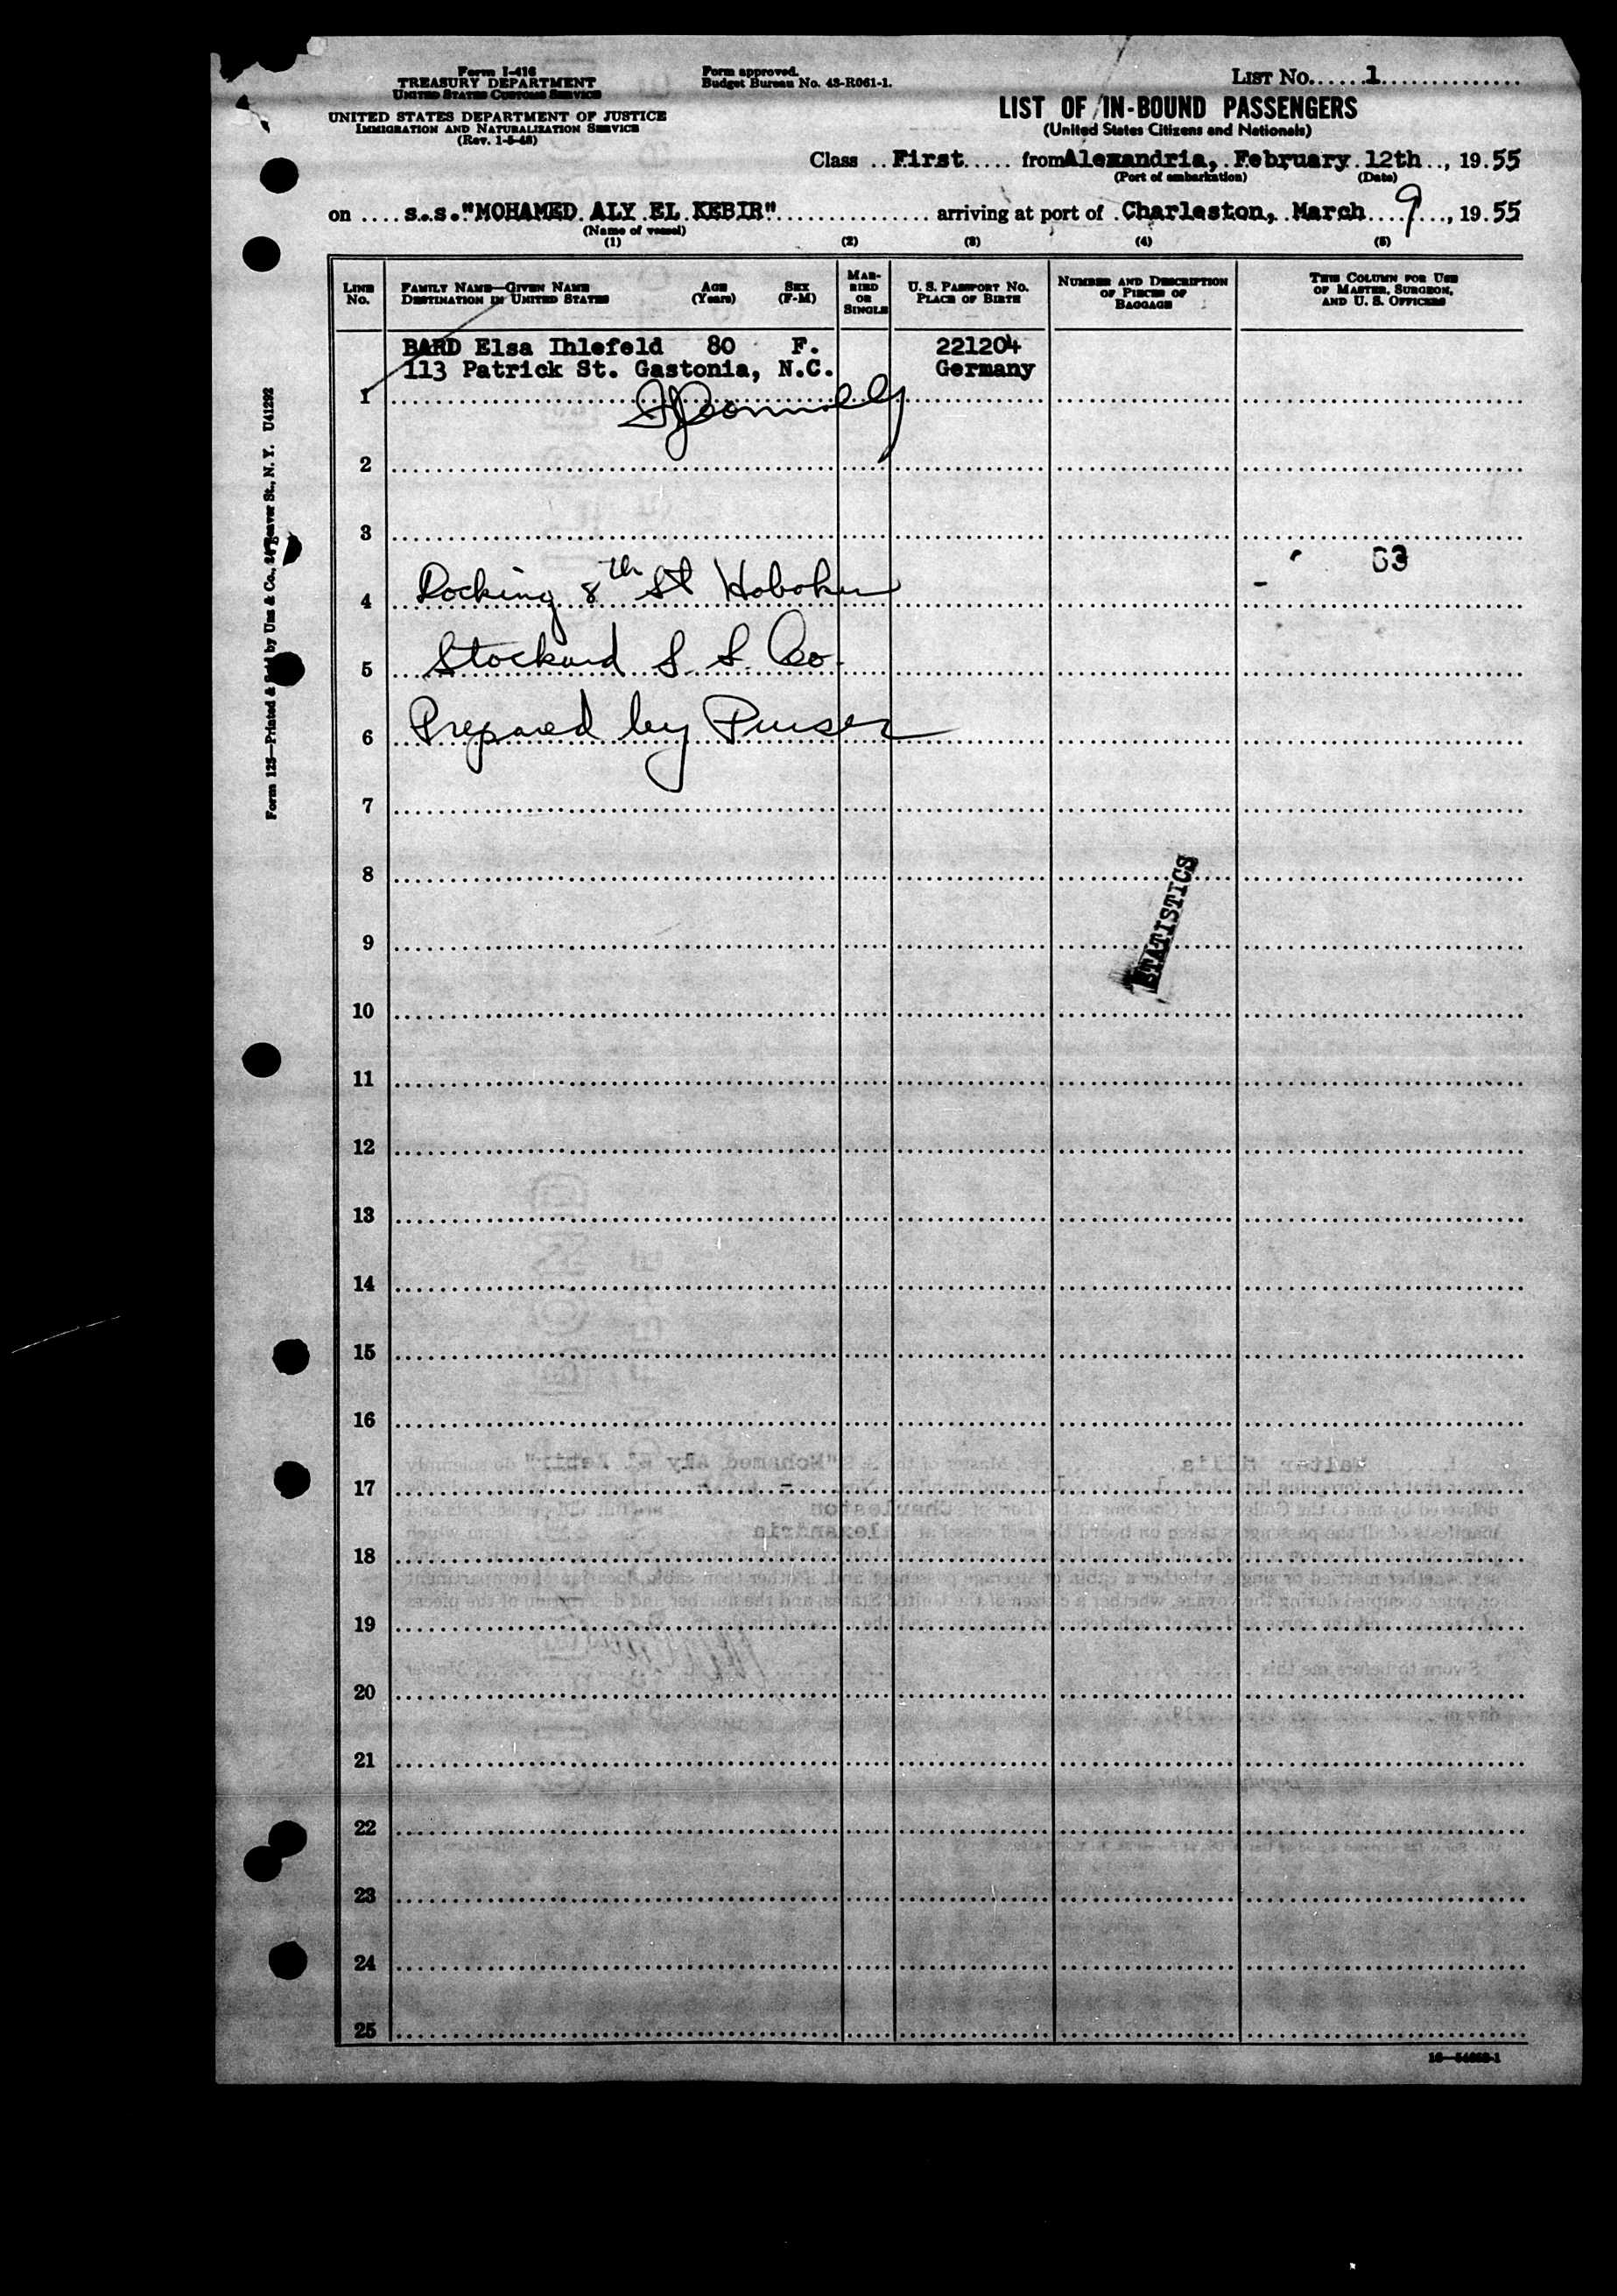 Form I-416
TREASURY DEPARTMENT
UNITED STATES CUSTOMS SERVICE
UNITED STATES DEPARTMENT OF JUSTICE
IMMIGRATION AND NATURALIZATION SERVICE
(Rev. 1-5-48)
Form approved.
Budget Bureau No. 43-R061-1.
LIST No......1..............
LIST OF IN-BOUND PASSENGERS
(United States Citizens and Nationals)
Class ..First..... from Alexandria, February 12th .., 19.55
(Port of embarkation) (Date)
on .... s.s."MOHAMED ALY EL KEBIR"................ arriving at port of .Charleston, March ....9...., 19.55
(Name of vessel)
(1) (2) (3) (4) (5)
LINE No.
FAMILY NAME—GIVEN NAME
DESTINATION IN UNITED STATES
AGE (Years)
SEX (F-M)
MARRIED OR SINGLE
U. S. PASSPORT No.
PLACE OF BIRTH
NUMBER AND DESCRIPTION OF PIECES OF BAGGAGE
THIS COLUMN FOR USE OF MASTER, SURGEON, AND U. S. OFFICERS
BARD Elsa Ihlefeld 80 F. 221204
113 Patrick St. Gastonia, N.C. Germany
1
2
3
63
4 Docking 8th St Hoboken
5 Stockard S. S. Co.
6 Prepared by Purser
7
8
STATISTICS
9
10
11
12
13
14
15
16
17
18
19
20
21
22
23
24
25
Form 125—Printed & Sold by Unz & Co., 24 Beaver St., N. Y. U41292